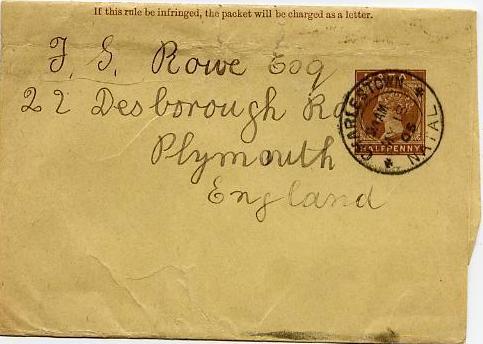 If this rule be infringed, the packet will be charged as a letter.
J. S. Rowe Esq
22 Desborough Rd
Plymouth
England
HALFPENNY
CHARLESTOWN
NATAL